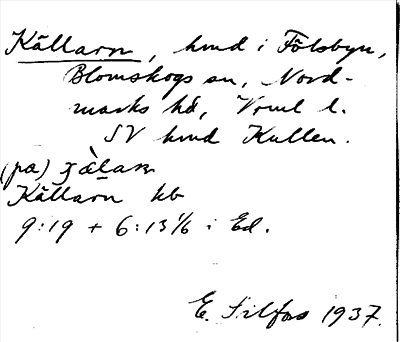 Källarn, hmd i Fölsbyn,
Blomskogs sn, Nord-
marks hd, Vrml l.
SV hmd Kullen.
(pa)
Källarn hb
9:19 + 6:13 1/6 i Ed.
E. Silfas 1937.